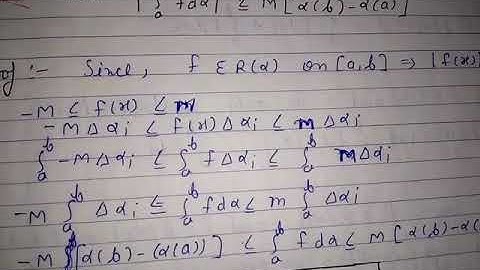 | ∫ₐᵇ f dα | ≤ M [α(b) - α(a)]
of :- Since, f ∈ R(α) on [a,b] ⇒ |f(x)|
-M ≤ f(x) ≤ m
-M Δαᵢ ≤ f(x) Δαᵢ ≤ m Δαᵢ
∫ₐᵇ -M Δαᵢ ≤ ∫ₐᵇ f Δαᵢ ≤ ∫ₐᵇ m Δαᵢ
-M ∫ₐᵇ Δαᵢ ≤ ∫ₐᵇ f dα ≤ m ∫ₐᵇ Δαᵢ
-M [α(b) - (α(a))] ≤ ∫ₐᵇ f dα ≤ M [α(b) - α(